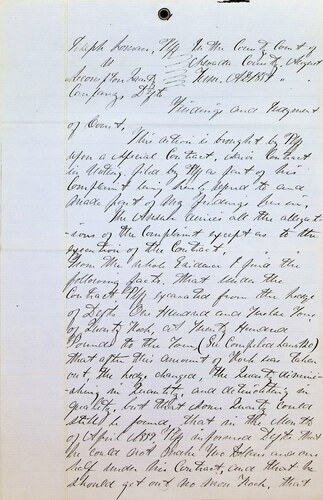 Joseph Pff In the County Court of
vs County, August
Quartz Term. A.D. 1859
Company, Dfts.
Findings and Judgment
of Court.
This action is brought by Pff
upon a Special Contract, which Contract
in Writing filed by Pff as part of his
Complaint being here refered to and
made part of my findings herein.
The Answer denies all the allegat-
-ions of the Complaint except as to the
execution of the Contract.
From the whole Evidence I find the
following facts. That under the
Contract Pff excavated from the ledge
of Dfts One Hundred and Twelve Tons,
of Quartz Rock, at Twenty Hundred
Pounds to the Ton,
that after this amount of Rock was taken
out, the ledge changed, the Quartz dimin-
-ishing in Quantity, and deteriorating in
quality, but that some Quartz could
still be found, that in the Month
of April 1859, Pff informed Dfts that
he could not Make Two Dollars and one
half under his Contract, and that he
should get out no more Rock, that